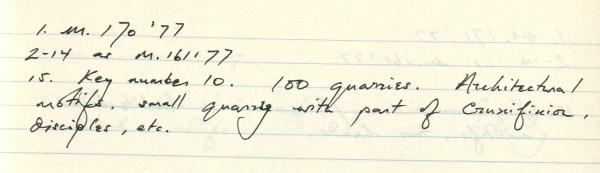 1. M. 170 '77
2-14 as M. 161 '77
15. Key number 10. 100 quarries. Architectural
motifs, small quarry with part of Crucifixion,
disciples, etc.